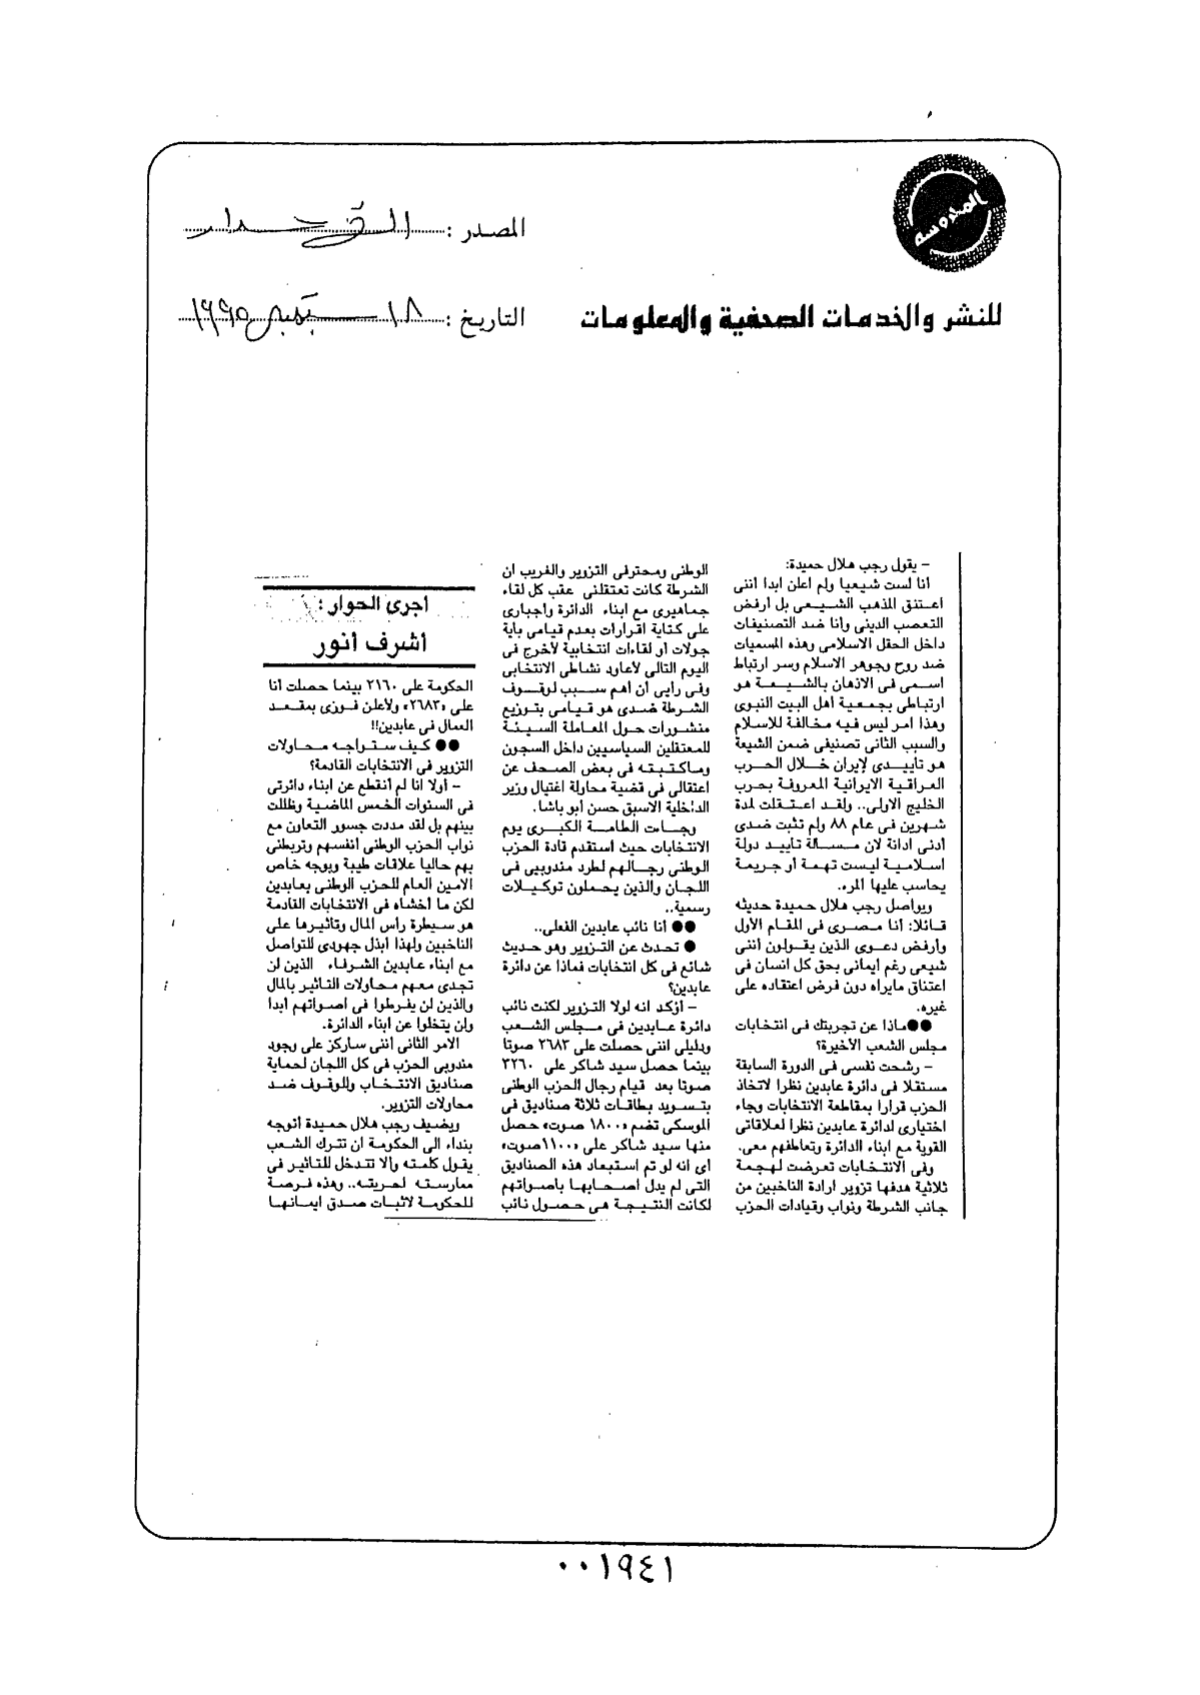 المحروسة
المصدر :
للنشر والخدمات الصحفية والمعلومات
التاريخ : ١٨ سبتمبر ١٩٩٥
– يقول رجب هلال حميدة:
انا لست شيعيا ولم اعلن ابدا اننى
اعتنق المذهب الشيعى بل ارفض
التعصب الدينى وانا ضد التصنيفات
داخل الحقل الاسلامى وهذه المسميات
ضد روح وجوهر الاسلام وسر ارتباط
اسمى فى الاذهان بالشيعة هو
ارتباطى بجمعية اهل البيت النبوى
وهذا امر ليس فيه مخالفة للاسلام
والسبب الثانى تصنيفى ضمن الشيعة
هو تأييدى لإيران خلال الحرب
العراقية الايرانية المعروفة بحرب
الخليج الاولى.. ولقد اعتقلت لمدة
شهرين فى عام ٨٨ ولم تثبت ضدى
أدنى ادانة لان مسالة تاييد دولة
اسلامية ليست تهمة أو جريمة
يحاسب عليها المرء.
ويواصل رجب هلال حميدة حديثه
قائلا: أنا مصرى فى المقام الأول
وأرفض دعوى الذين يقولون أننى
شيعى رغم ايمانى بحق كل انسان فى
اعتناق مايراه دون فرض اعتقاده على
غيره.
●●ماذا عن تجربتك فى انتخابات
مجلس الشعب الأخيرة؟
– رشحت نفسى فى الدورة السابقة
مستقلا فى دائرة عابدين نظرا لاتخاذ
الحزب قرارا بمقاطعة الانتخابات وجاء
اختيارى لدائرة عابدين نظرا لعلاقاتى
القوية مع ابناء الدائرة وتعاطفهم معى.
وفى الانتخابات تعرضت لهجمة
ثلاثية هدفها تزوير ارادة الناخبين من
جانب الشرطة ونواب وقيادات الحزب
الوطنى ومحترفى التزوير والغريب ان
الشرطة كانت تعتقلنى عقب كل لقاء
جماهيرى مع ابناء الدائرة واجبارى
على كتابة اقرارات بعدم قيامى باية
جولات أو لقاءات انتخابية لأخرج فى
اليوم التالى لأعاود نشاطى الانتخابى
وفى رايى أن أهم سبب لوقوف
الشرطة ضدى هو قيامى بتوزيع
منشورات حول المعاملة السيئة
للمعتقلين السياسيين داخل السجون
وماكتبته فى بعض الصحف عن
اعتقالى فى قضية محاولة اغتيال وزير
الداخلية الاسبق حسن أبو باشا.
وجاءت الطامة الكبرى يوم
الانتخابات حيث استقدم قادة الحزب
الوطنى رجالهم لطرد مندوبيى فى
اللجان والذين يحملون توكيلات
رسمية..
●● أنا نائب عابدين الفعلى..
● تحدث عن التزوير وهو حديث
شائع فى كل انتخابات فماذا عن دائرة
عابدين؟
– اؤكد انه لولا التزوير لكنت نائب
دائرة عابدين فى مجلس الشعب
ودليلى اننى حصلت على ٢٦٨٣ صوتا
بينما حصل سيد شاكر على ٣٢٦٠
صوتا بعد قيام رجال الحزب الوطنى
بتسويد بطاقات ثلاثة صناديق فى
الموسكى تضم «١٨٠٠ صوت» حصل
منها سيد شاكر على «١١٠٠صوت»
اى انه لو تم استبعاد هذه الصناديق
التى لم يدل اصحابها باصواتهم
لكانت النتيجة هى حصول نائب
اجرى الحوار :
اشرف انور
الحكومة على ٢١٦٠ بينما حصلت أنا
على «٢٦٨٣» ولاعلن فوزى بمقعد
العمال فى عابدين!!
●● كيف ستواجه محاولات
التزوير فى الانتخابات القادمة؟
– أولا انا لم أنقطع عن ابناء دائرتى
فى السنوات الخمس الماضية وظللت
بينهم بل لقد مددت جسور التعاون مع
نواب الحزب الوطنى أنفسهم وتربطنى
بهم حاليا علاقات طيبة وبوجه خاص
الامين العام للحزب الوطنى بعابدين
لكن ما أخشاه فى الانتخابات القادمة
هو سيطرة رأس المال وتأثيرها على
الناخبين ولهذا ابذل جهودى للتواصل
مع ابناء عابدين الشرفاء الذين لن
تجدى معهم محاولات التاثير بالمال
والذين لن يفرطوا فى اصواتهم ابدا
ولن يتخلوا عن ابناء الدائرة.
الامر الثانى أننى ساركز على وجود
مندوبى الحزب فى كل اللجان لحماية
صناديق الانتخاب وللوقوف ضد
محاولات التزوير.
ويضيف رجب هلال حميدة أتوجه
بنداء الى الحكومة ان تترك الشعب
يقول كلمته والا تتدخل للتاثير فى
ممارسته لحريته.. وهذه فرصة
للحكومة لاثبات صدق ايمانها
٠٠١٩٤١